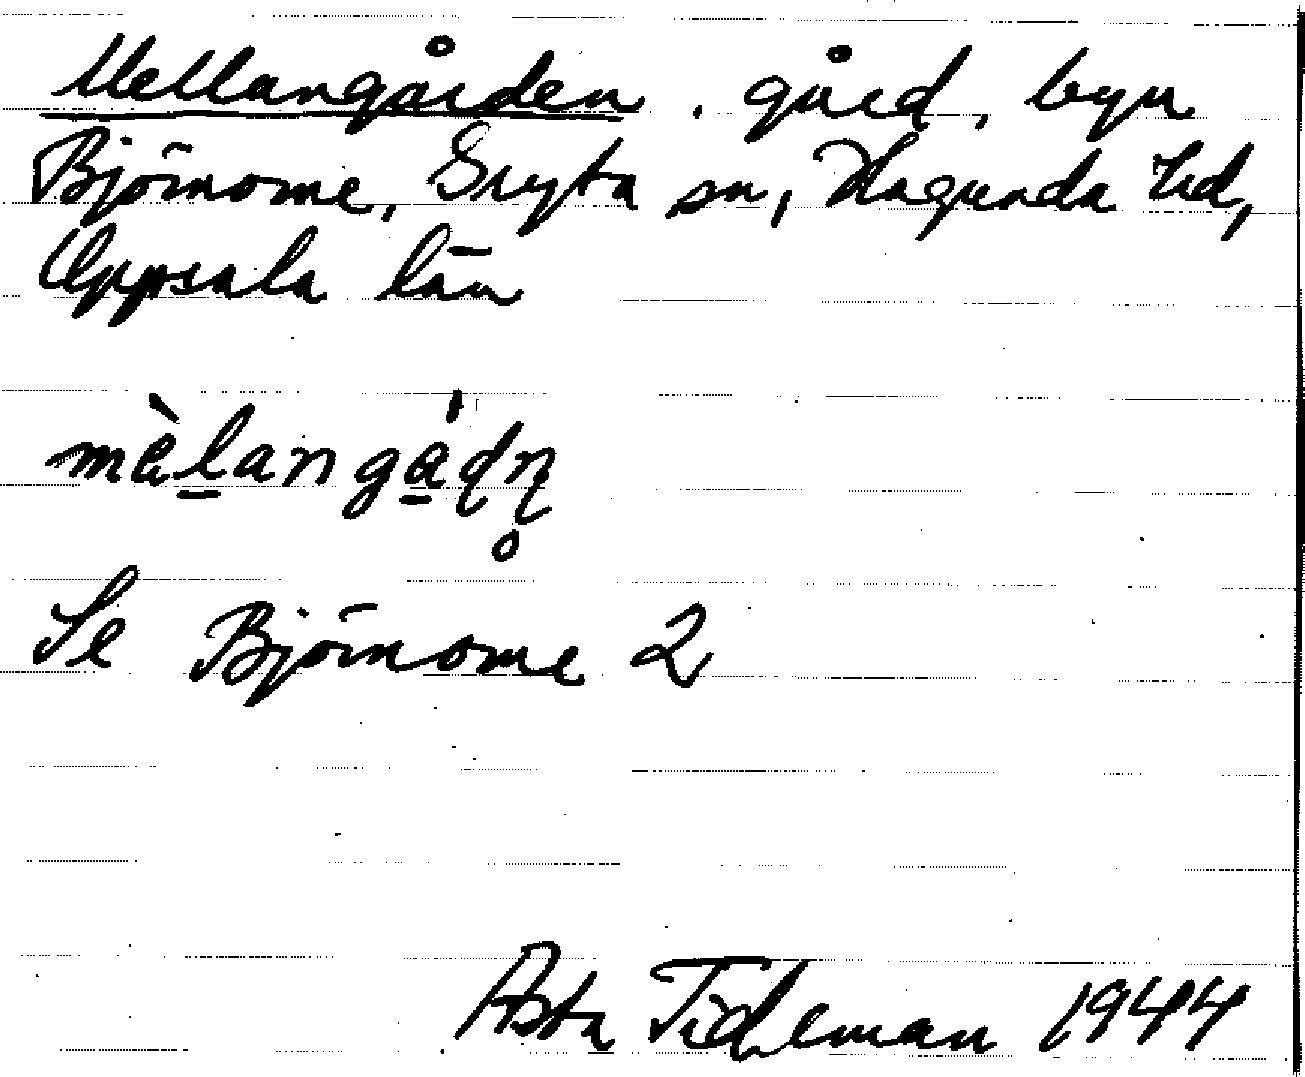 Mellangården, gård, byn
Björnome, Gryta sn, Hagunda hd,
Uppsala län
mèlangá̱ḍṇ̥
Se Björnome 2
Asta Tideman 1944